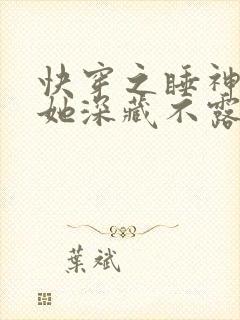 快穿之睡神
她深藏不露
葉斌